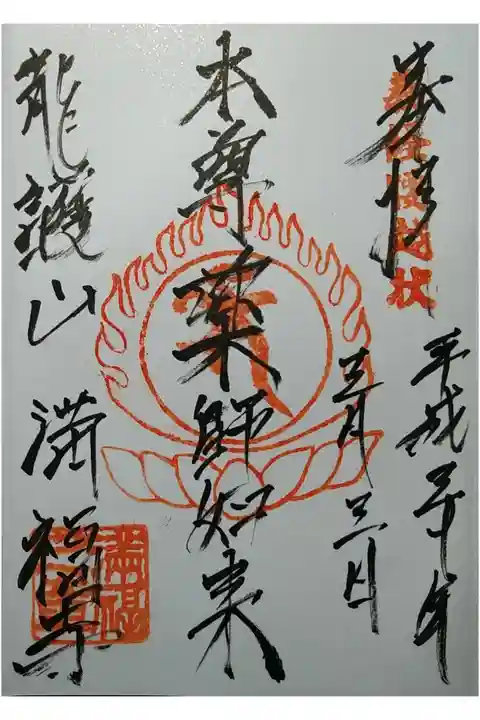 奉拝
平成三十年
三月三日
本尊薬師如来
龍護山満福寺